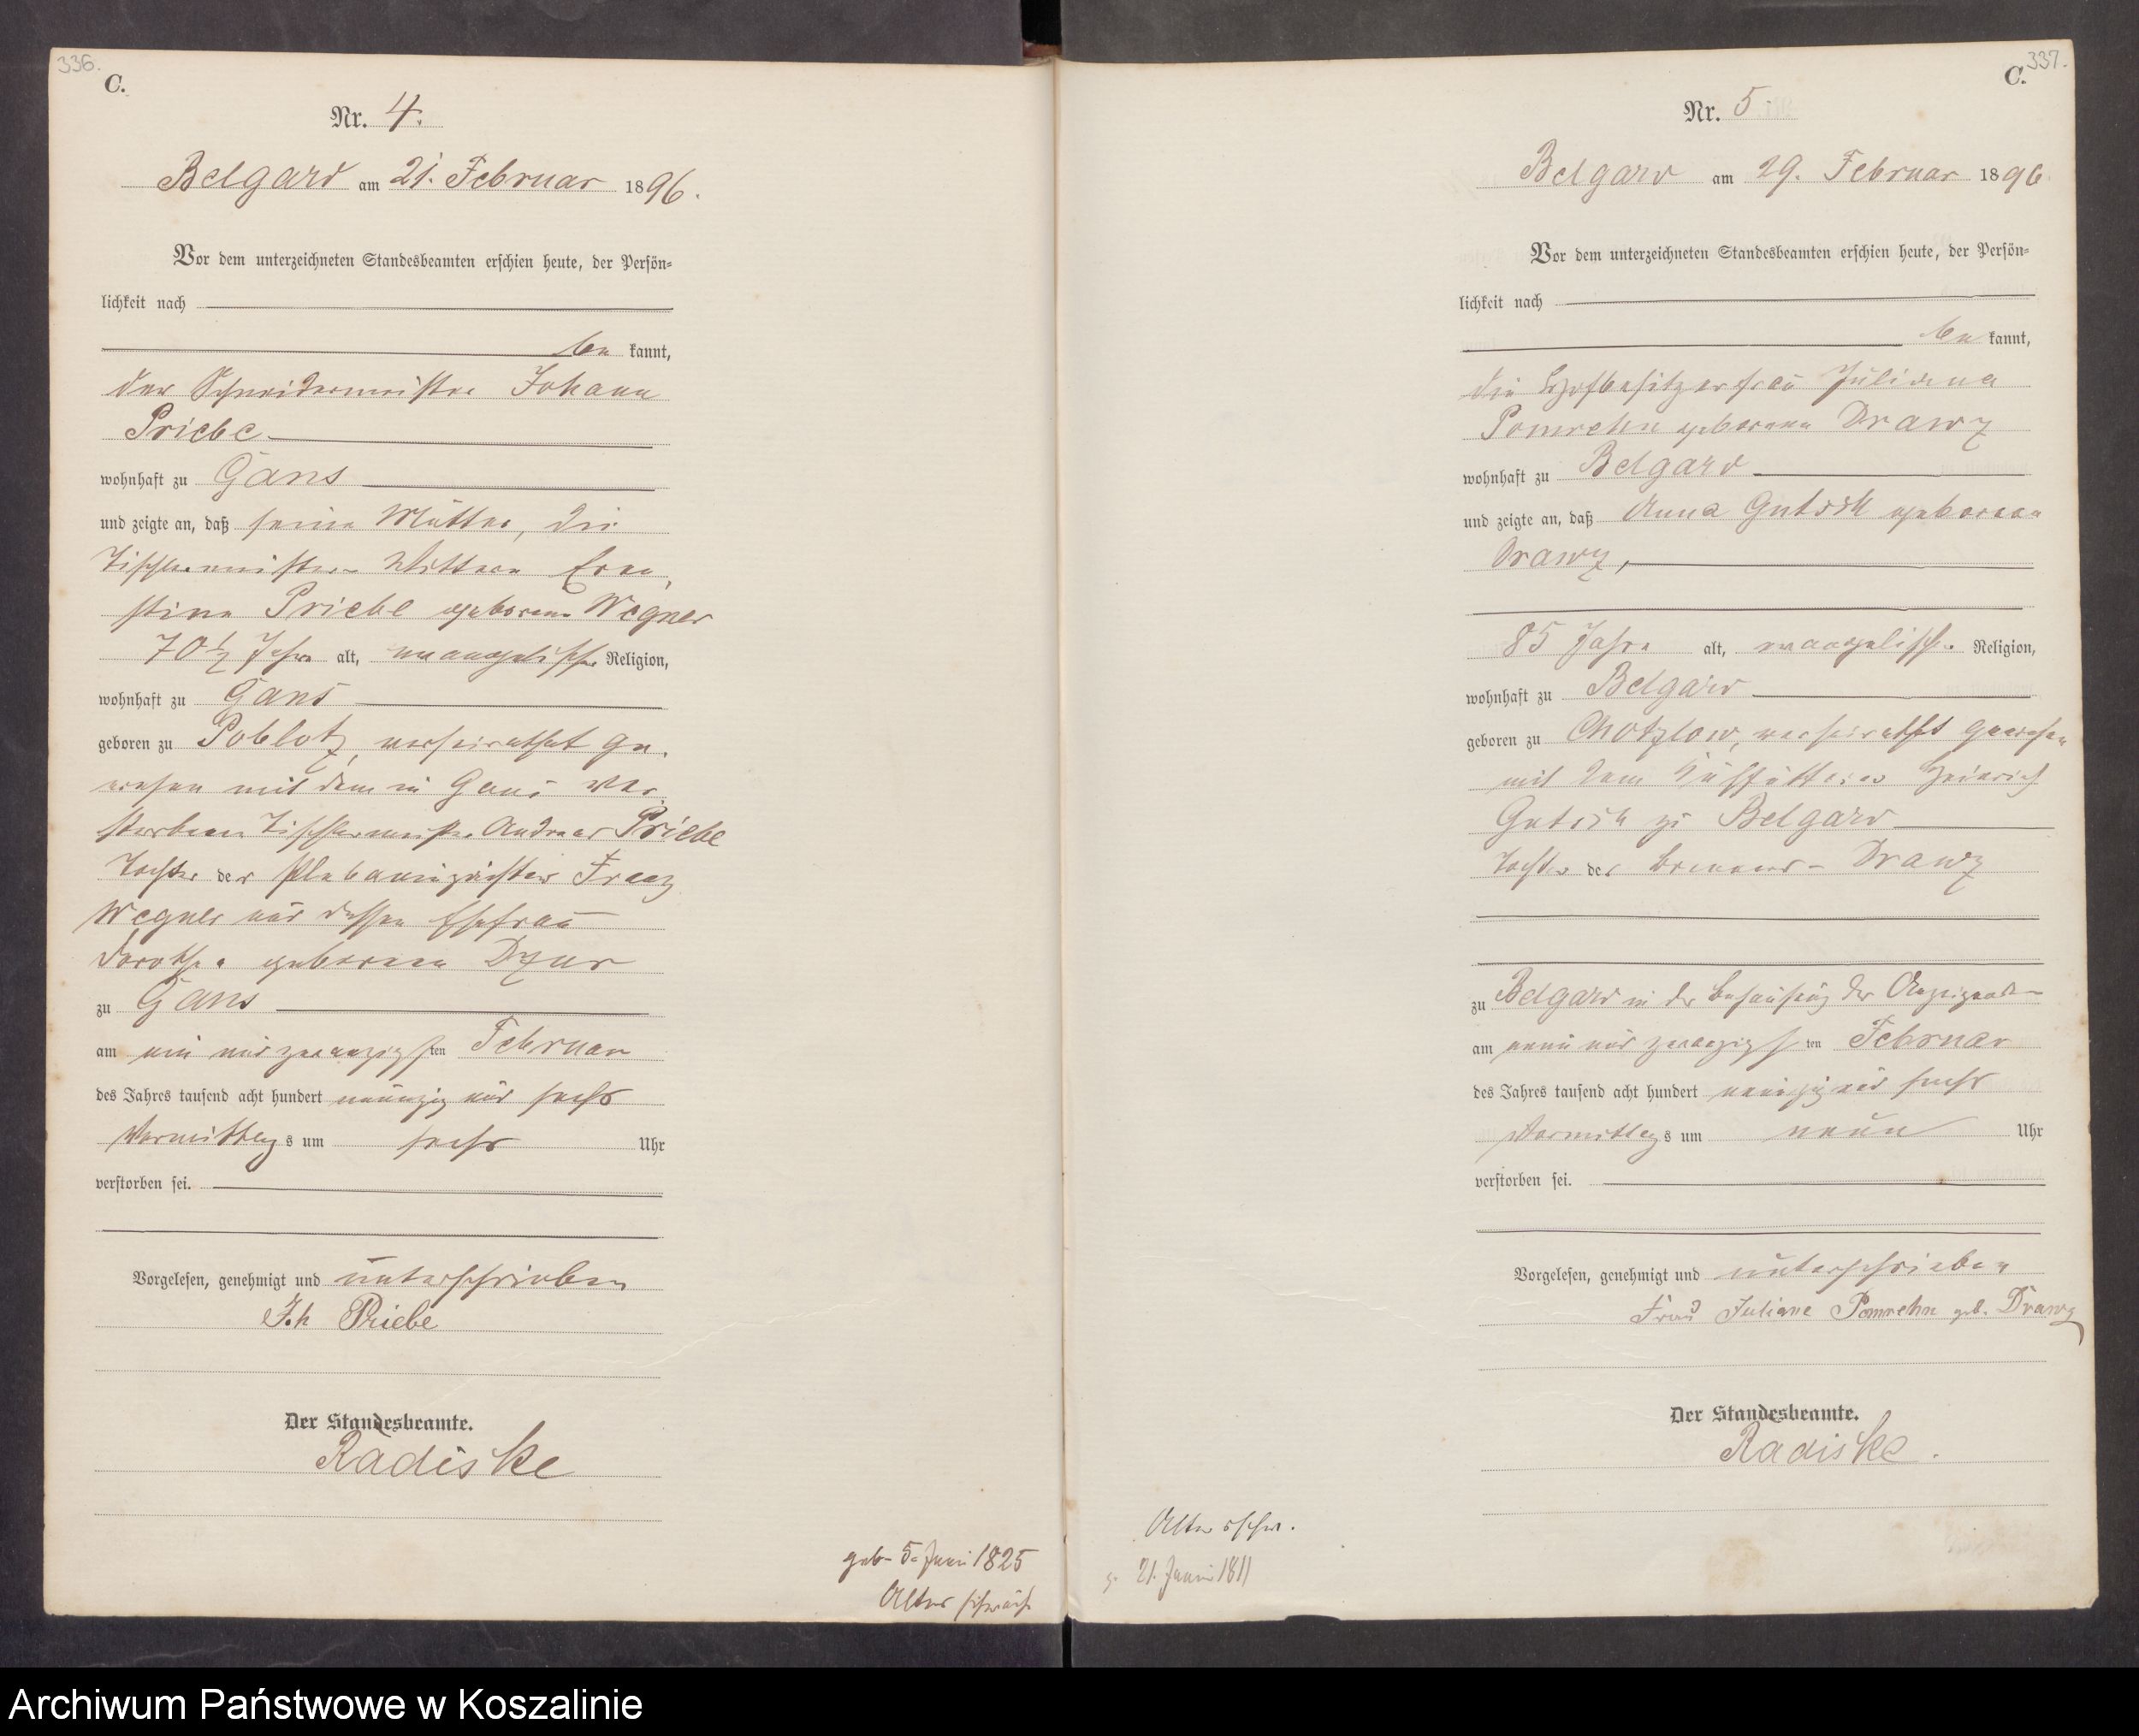 336.
C.
Nr. 4.
Belgard am 21. Februar 1896.
Vor dem unterzeichneten Standesbeamten erschien heute, der Persön-
lichkeit nach
be kannt,
der Schneidermeister Johann
Priebe
wohnhaft zu Gans
und zeigte an, daß seine Mutter, die
Tischlermeister Wittwe Erne
stine Priebe geborene Wegner
70½ Jahre alt, evangelischer Religion,
wohnhaft zu Gans
geboren zu Poblotz, verheirathet ge-
wesen mit dem in Gans ver
storbenen Tischlermeister Andreas Priebe
Tochter der Franz
Wegner und dessen Ehefrau
Dorothea geborene
zu Gans
am ein und zwanzigsten Februar
des Jahres tausend acht hundert neunzig und sechs
Vormittags um sechs Uhr
verstorben sei.
Vorgelesen, genehmigt und unterschrieben
Joh Priebe
Der Standesbeamte.
Radiske
geb. 5. Juni 1825
Altersschwäch
337.
C.
Nr. 5
Belgard am 29. Februar 1896
Vor dem unterzeichneten Standesbeamten erschien heute, der Persön-
lichkeit nach
be kannt,
die Hofbesitzerfrau Juliana
Pomrehn geborene Drawz
wohnhaft zu Belgard
und zeigte an, daß Anna geborene
Drawz,
85 Jahre alt, evangelischer Religion,
wohnhaft zu Belgard
geboren zu Chotzlow, verheirathet gewesen
mit dem Kuhfütterer Heinrich
zu Belgard
Tochter des Drawz
zu Belgard in der Behausung der Anzeigende
am neun und zwanzigsten Februar
des Jahres tausend acht hundert neunzig und sechs
Vormittags um neun Uhr
verstorben sei.
Vorgelesen, genehmigt und unterschrieben
Frau Juliane Pomrehn geb. Drawz
Der Standesbeamte.
Radiske.
Altersschw.
g. 21. Juni 1811
Archiwum Państwowe w Koszalinie